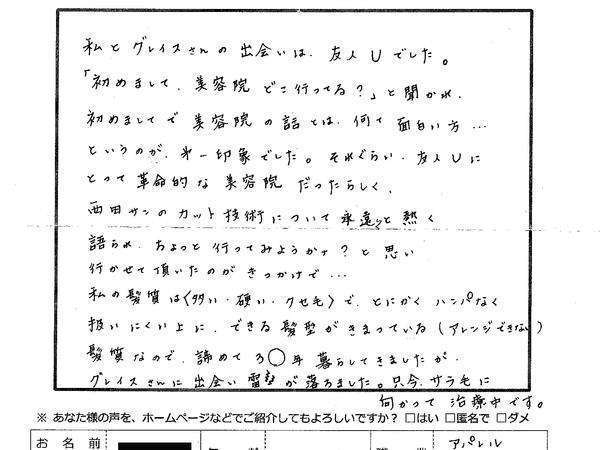 私とグレイスさんの出会いは、友人Uでした。
「初めまして、美容院どこ行ってる？」と聞かれ、
初めましてで美容院の話とは、何て面白い方…
というのが、第一印象でした。それぐらい、友人Uに
とって革命的な美容院だったらしく、
西田サンのカット技術について永遠と熱く
語られ、ちょっと行ってみようかナ？と思い
行かせて頂いたのがきっかけで…
私の髪質は〈多い・硬い・クセ毛〉で、とにかくハンパなく
扱いにくい上に、できる髪型がきまっている(アレンジできない)
髪質なので、諦めて3〇年暮らしてきましたが、
グレイスさんに出会い雷が落ちました。只今、サラ毛に
向かって治療中です。
※ あなた様の声を、ホームページなどでご紹介してもよろしいですか？ □はい □匿名で □ダメ
お名前
アパレル